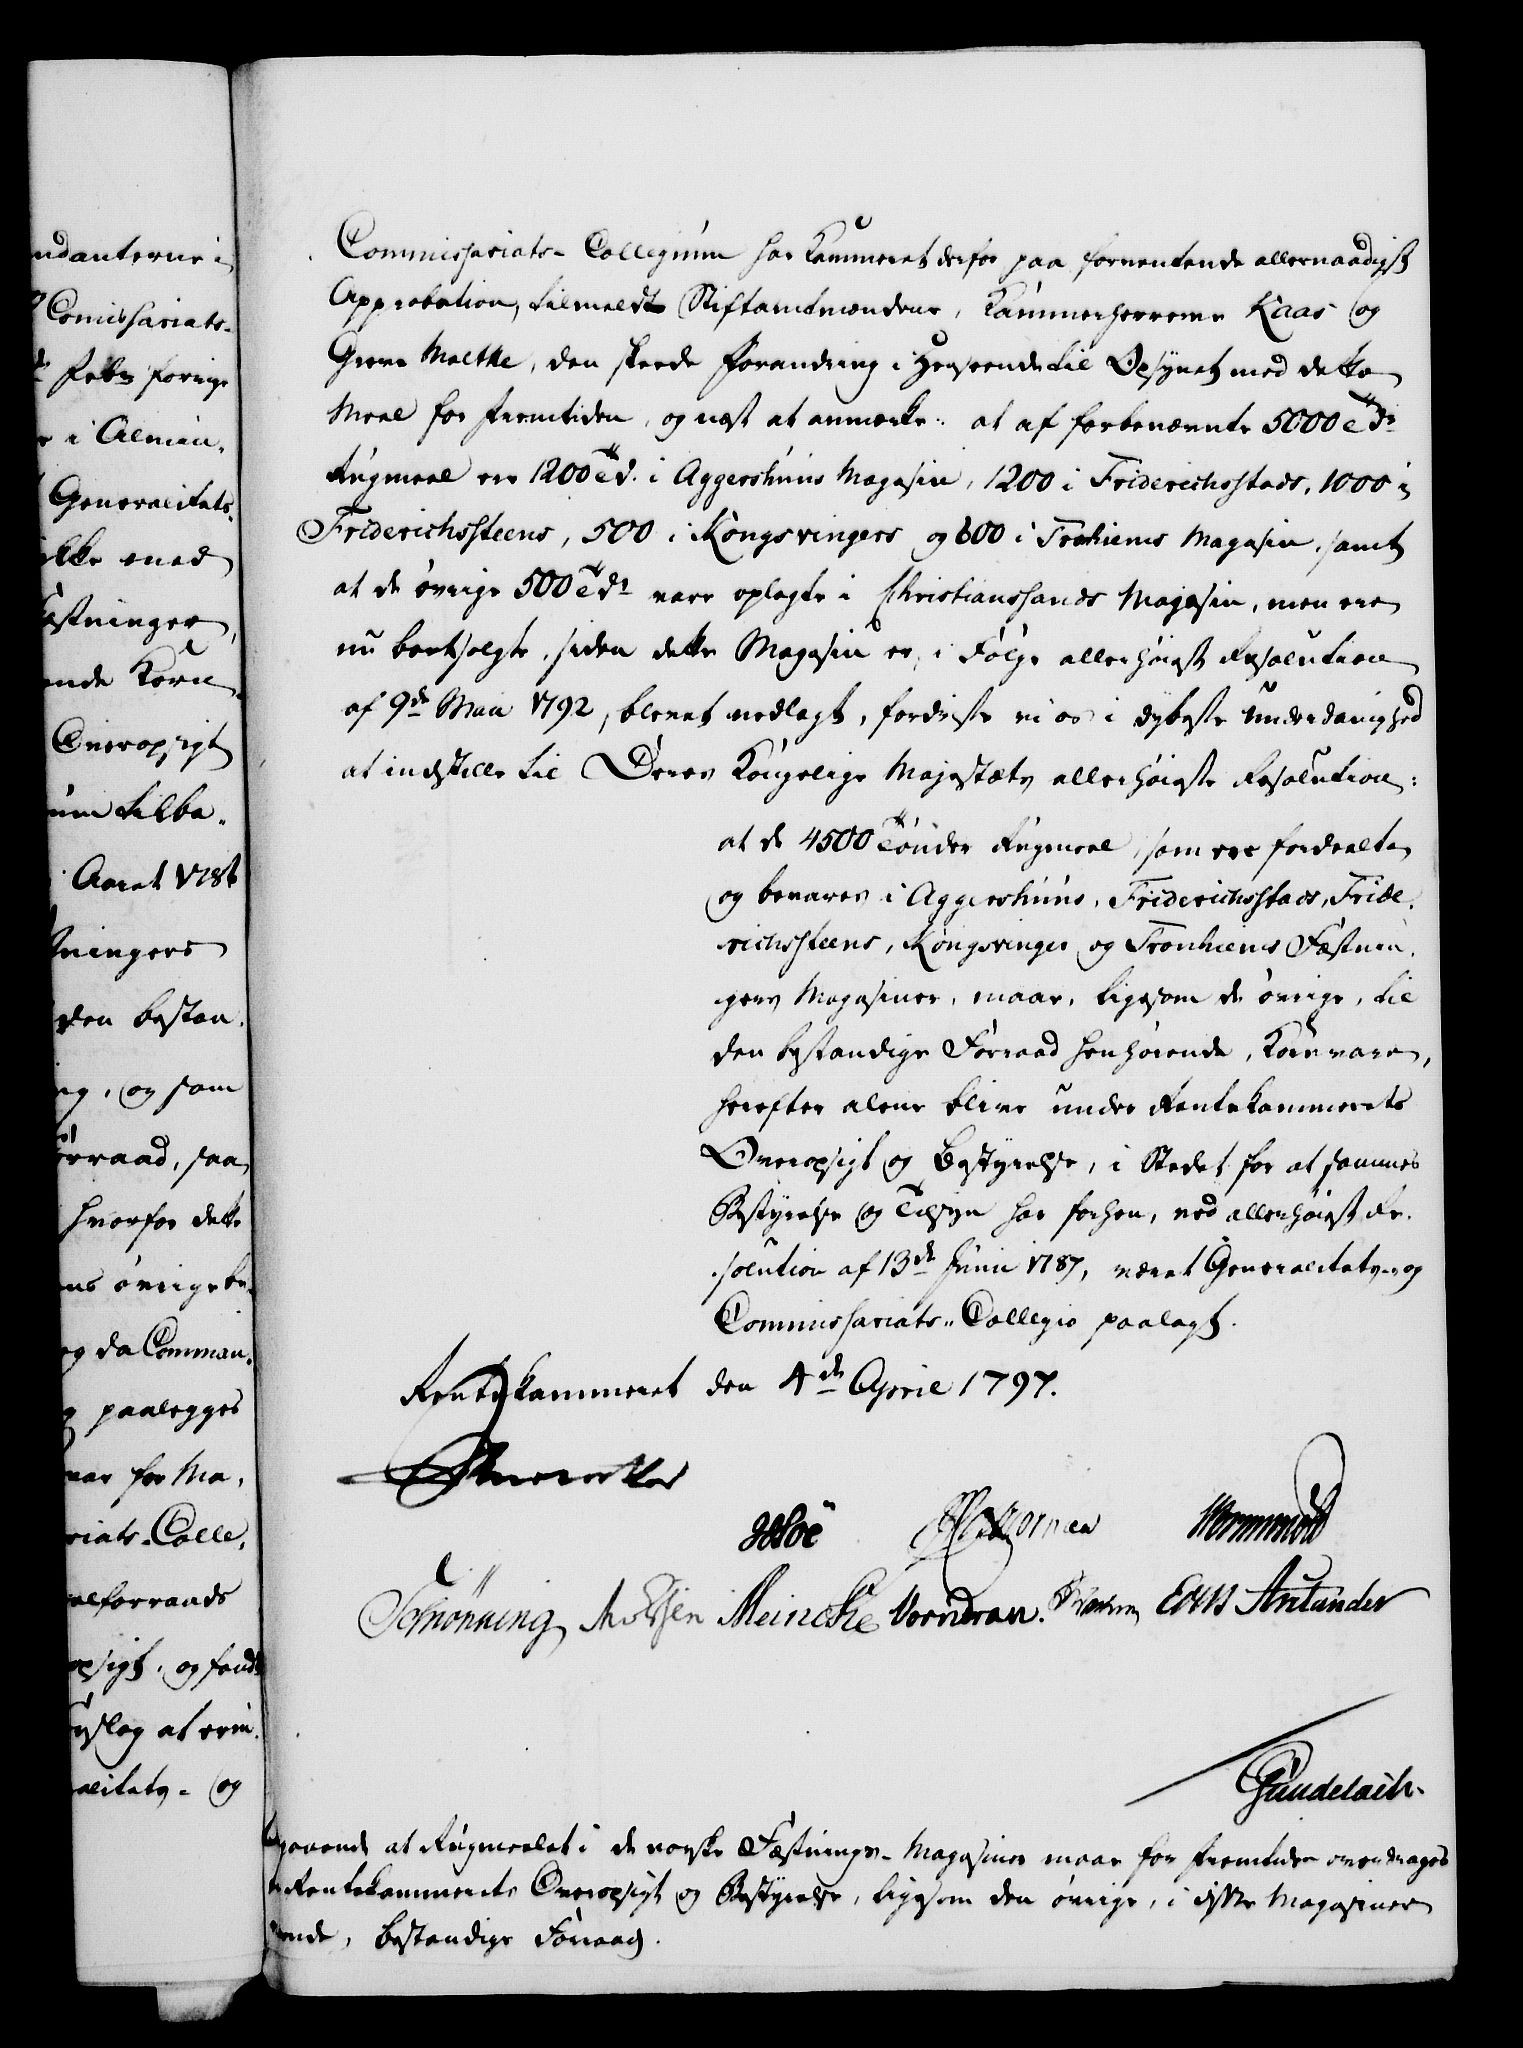 ndanterne i
Comissariats-
Febr forige
r i Almin-
Generalitets-
ikke med
æstninger,
ende Korn-
Overopsigt
um tilba-
Aaret 1786
tningers
den bestan-
ng, og som
orraad, saa
hvorfor dette
ens övrige be-
og da Comman-
paalegges
var for Ma-
riats-Colle-
eelforraads
opsigt, og fandt
rslag at erin-
alitets- og
Commissariats-Collegium har Kammeret derfor paa forventende allernaadigst
Approbation, tilmeldt Stiftamtmændene, Kammerherrerne Kaas og
Greve Moltke, den skeede Forandring i Henseende til Opsynet med dette
Meel for Fremtiden, og næst at anmærke: at af forbenævnte 5000 Tdr
Rugmeel ere 1200 Td. i Aggershuus Magasin, 1200 i Friderichsstads, 1000 i
Friderichssteens, 500 i Kongsvingers og 600 i Tronhiems Magasin, samt
at de övrige 500 Tdr vare oplagte i Christianssands Magasin, men ere
nu bortsolgte, siden dette Magasin er, i Fölge allerhöieste Resolution
af 9de Maii 1792, blevet nedlagt, fordriste vi os i dybeste Underdanighed
at indstille til Deres Kongelige Majestæts allerhöieste Resolution:
at de 4500 Tönder Rugmeel, som ere fordeelte
og bevares i Aggershuus, Friderichsstads, Fride-
richssteens, Kongsvinger og Tronhiems Fæstnin-
gers Magasiner, maae, ligesom de övrige, til
den bestandige Forraad henhörende, Kornvare,
herefter alene blive under Rentekammerets
Overopsigt og Bestyrelse, i Stedet for at sammes
Bestyrelse og Tilsyn har forhen, ved allerhöiest Re-
solution af 13de Junii 1787, været Generalitets- og
Commissariats-Collegio paalagt.
Rentekammeret den 4de April 1797.
Schönning Meincke Wormdran. Anlunder
Gundelach.
gaaende at Rugmeelet i de norske Fæstnings-Magasiner maae for Fremtiden overdrages
Rentekammerets Overopsigt og Bestyrelse, ligesom den övrige, i disse Magasiner
ende, bestandige Forraad.